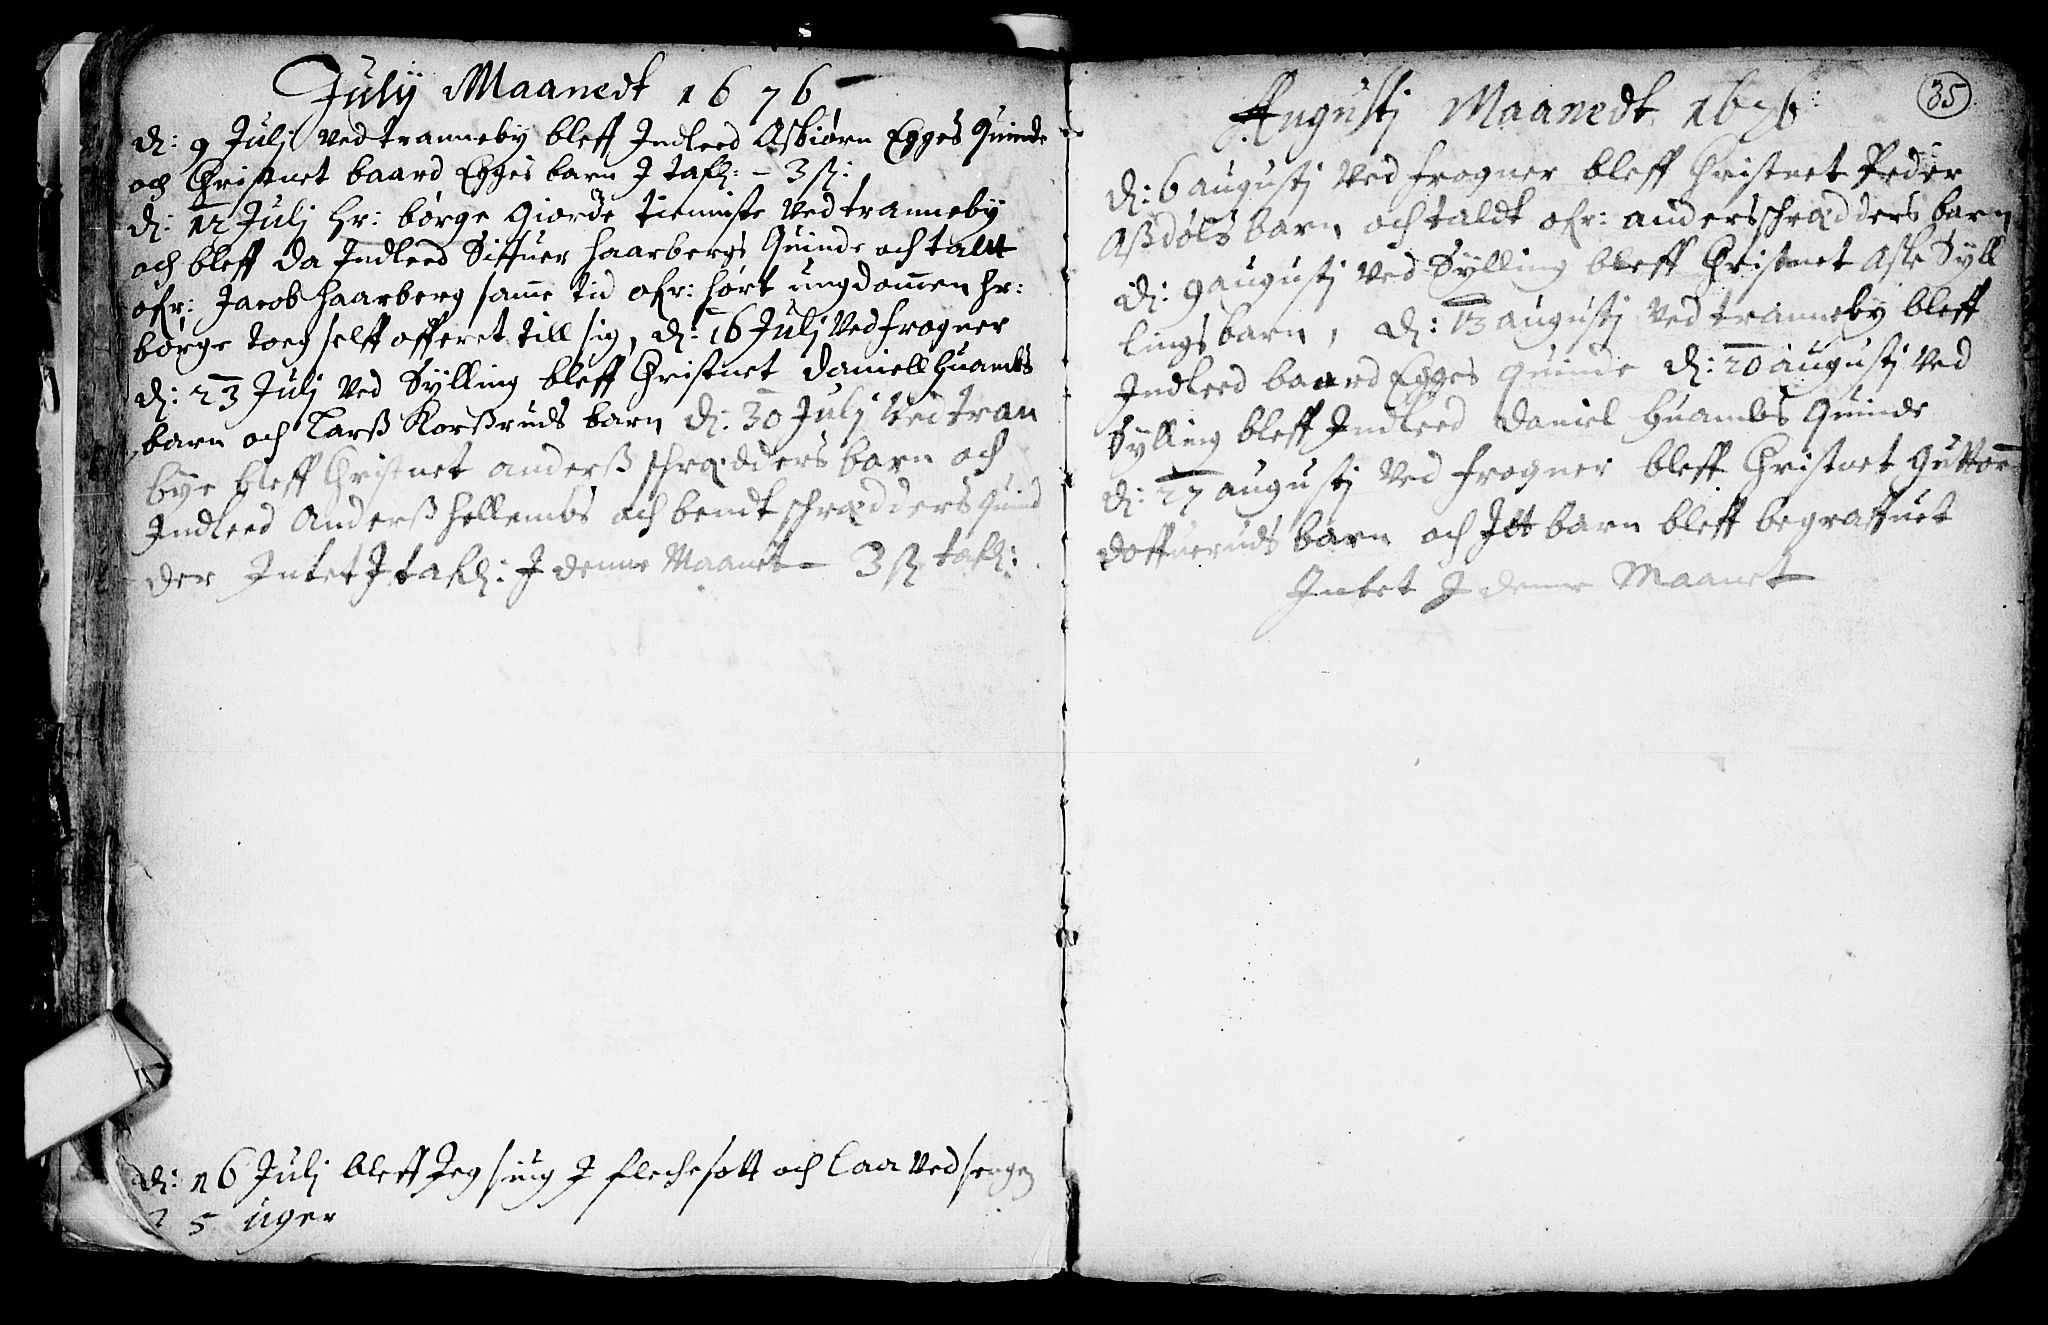 Julÿ Maanedt 1676
d: 9 Julj Ved tranneby bleff Indleed Asbiørn Egges Quinde
och Christnet baard Egges barn J tafl: – 3 ß:
d: 12 Julj Hr: børge Giorde tienniste Ved tranneby
och bleff da Indleed Siffuer haarbergs Quinde och taldt
ofr: Jacob haarberg samme tid ofr: hørt ungdommen Hr:
børge toeg selff offeret till sig, d: 16 Julj Ved frogner
d: 23 Julj Ved Sylling bleff Christnet daniell huambs
barn och Larß Korßruds barn d: 30 Julj Ved tran
bye bleff Christnet anderß schrædders barn och
Indleed Anderß hellembs och bendt schrædders quind
der Intet J tafl: J denne Maanet – 3 ß tafl:
d: 16 Julj bleff Jeg siug J flechesott och laa Ved sengen
5 uger
35
Augustj Maanedt 1676
d: 6 augustj Ved frogner bleff Christnet Peder
Aßdøls barn och taldt ofr: anders schrædders barn
d: 9 augustj Ved Sylling bleff Christnet Aste Syll
lings barn, d: 13 augustj Ved tranneby bleff
Indleed baard Egges quinde d: 20 augustj Ved
Sylling bleff Indleed daniel huambs Quinde
d: 27 augustj Ved frogner bleff Christnet Guttor
doffueruds barn och Itt barn bleff begraffuet
Intet J denne Maanet